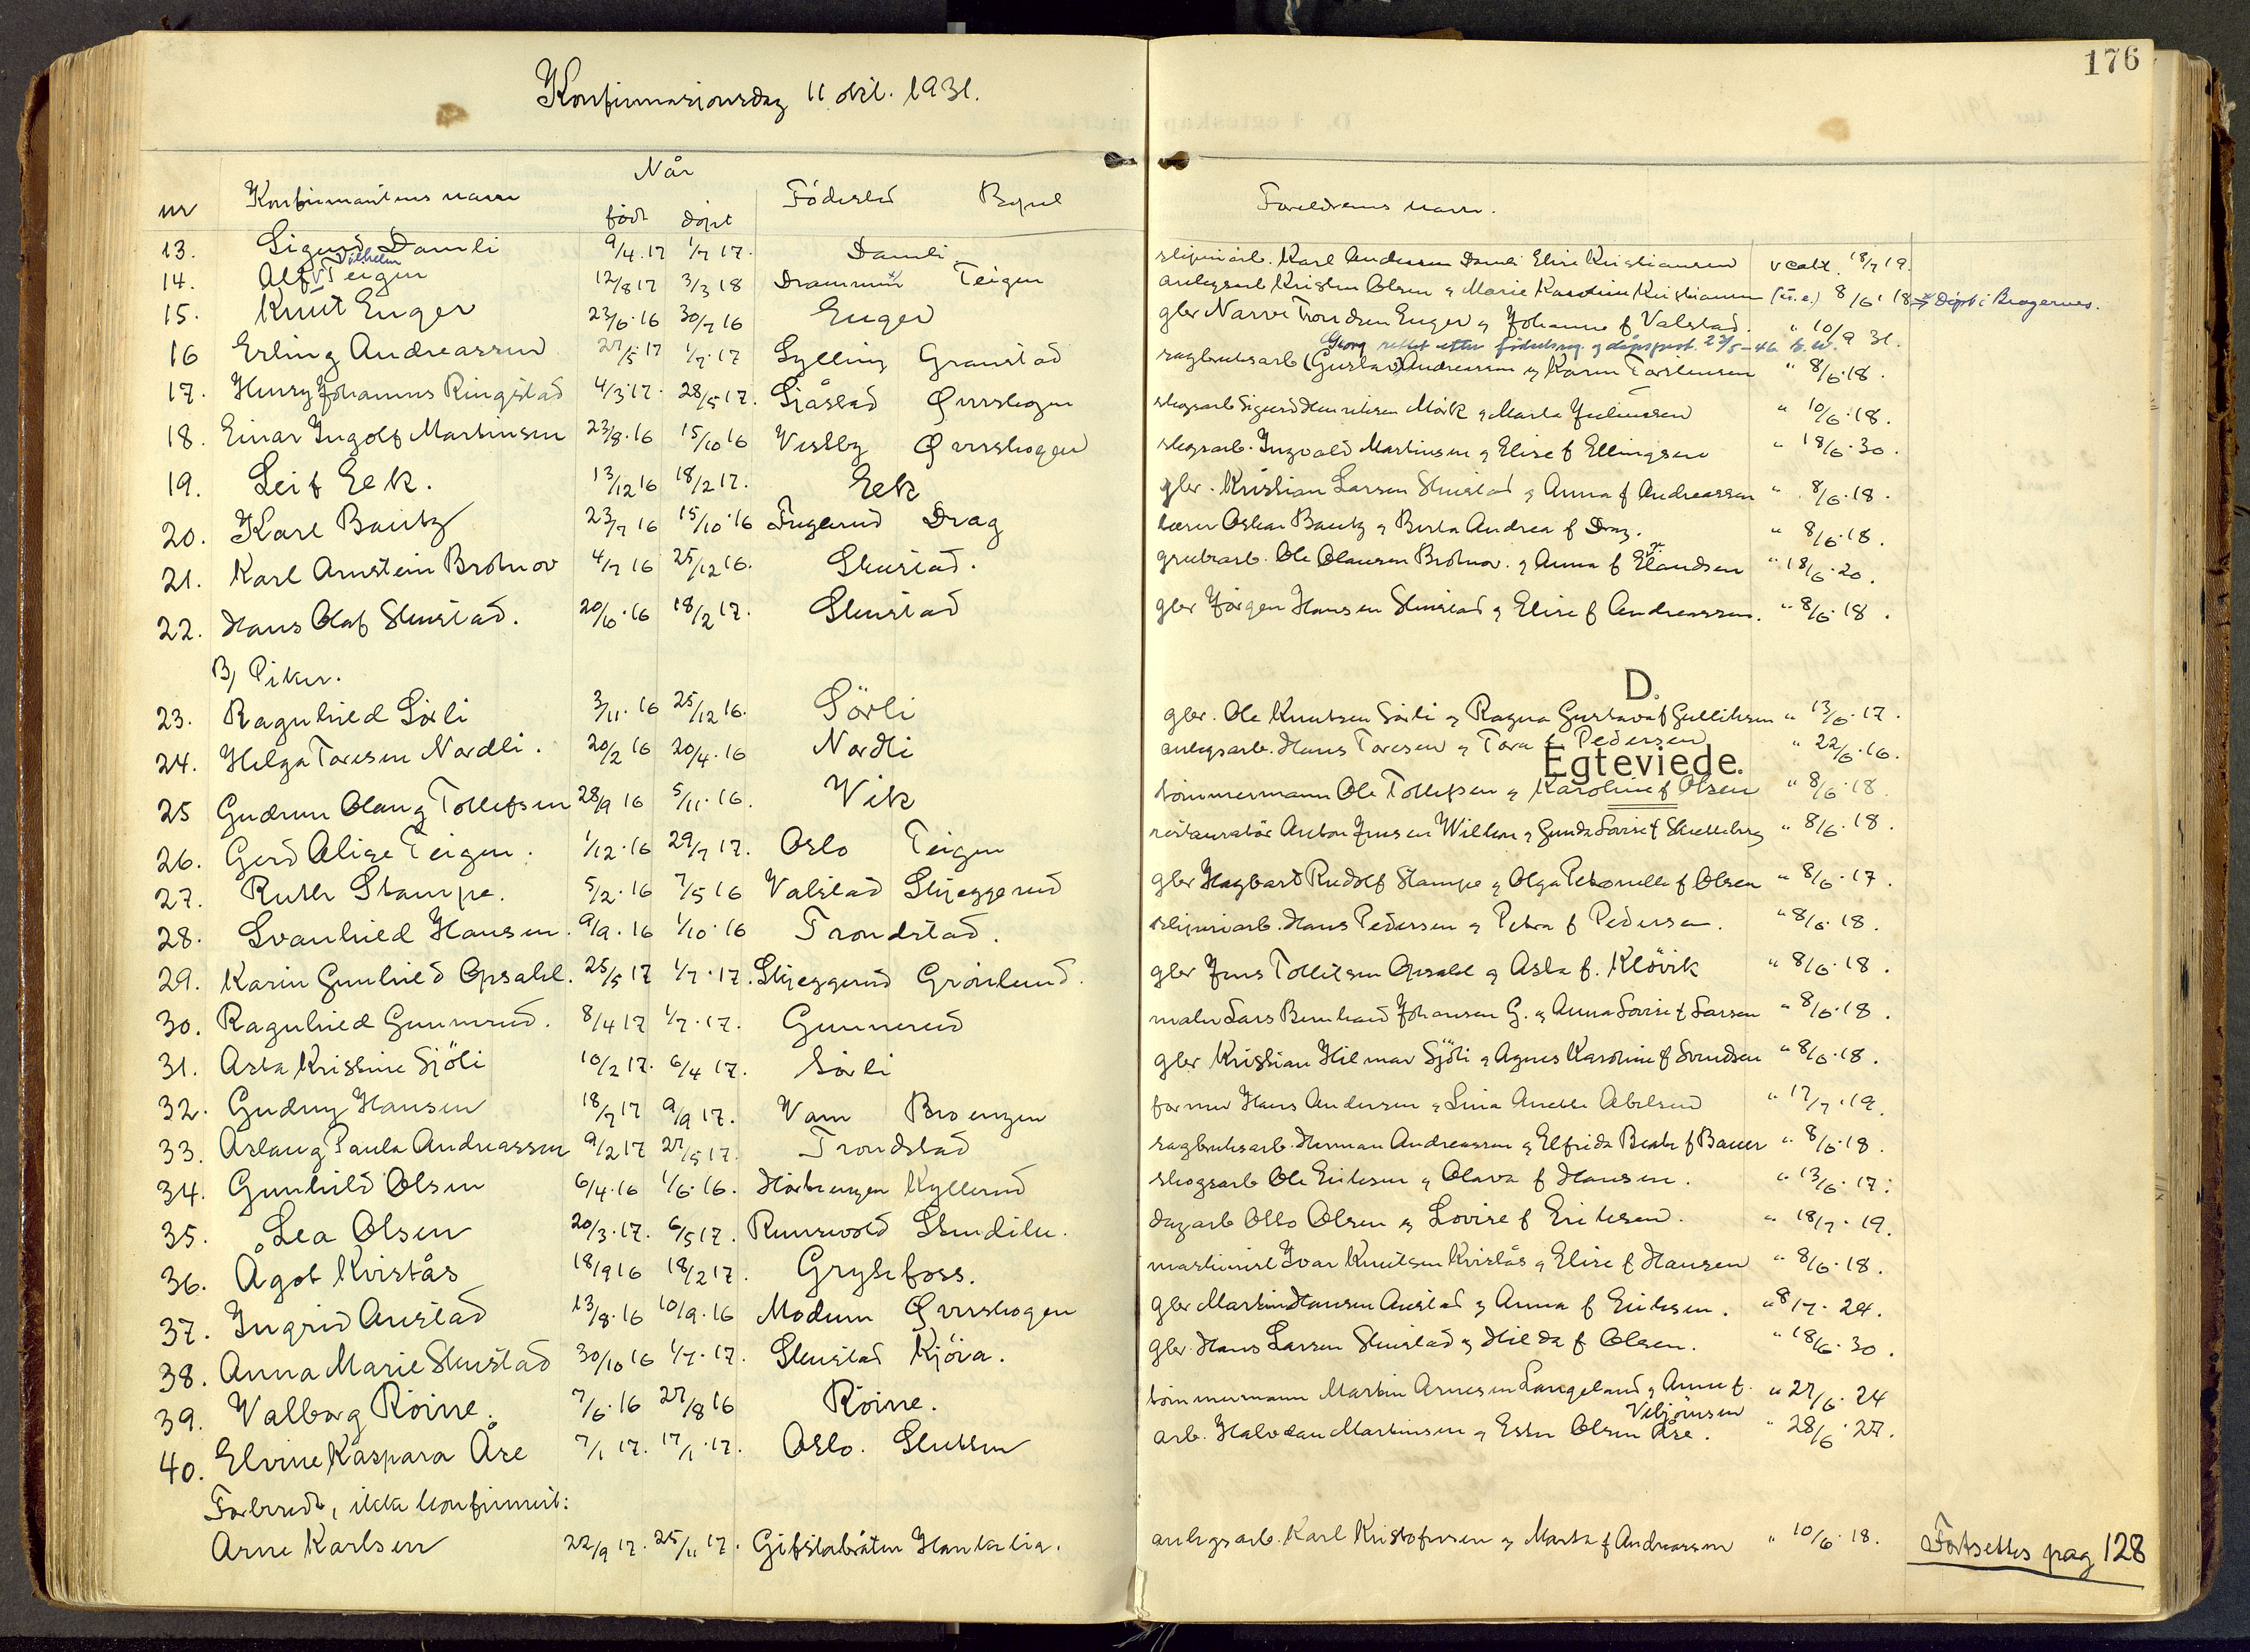 176
Konfirmasjonsdag 11 okt. 1931.
nr Konfirmantens navn Når født døpt Fødested Bopel Foreldrenes navn.
13. Sigurd Damli 9/4.17 1/7 17. Damli sliperiarb. Karl Andersen Damli Elise Kristiansen vcalt. 18/7 19.
14. Alf V Vilhelm Teigen 12/8 17 3/3 18 Drammen Teigen anlegsarb Kristen Olsen & Marie Karoline Kristiansen (u.e.) 8/6.18 døpt i Bragernes.
15. Knut Enger 23/6.16 30/7 16 Enger gbr Narve Trondsen Enger & Johanne f Valstad. " 10/9 31.
Georg rettet etter fødselsreg. og dåpsprot. 27/5-46
16 Erling Andreassen 27/5.17 1/7.17 Sylling Granstad sagbruksarb (Gustav) Andreassen & Karen Torstensen " 8/6.18.
17. Henry Johannes Ringstad 4/3.17. 28/5 17. Sjåstad Øvrskogen skogsarb Sigurd Henriksen Mørk & Marta Julinssen " 10/6.18.
18. Einar Ingolf Martinsen 23/8.16 15/10 16 Vestby Øvrskogen skogsarb. Ingvald Martinsen & Elise f Ellingsen " 18/6.30.
19. Leif Eek. 13/12 16 18/2 17. Eek gbr. Kristian Larsen Skustad & Anna f Andreassen " 8/6.18.
20. Karl Bautz 23/7 16 15/10.16 Fugerud Drag lærer Oskar Bautz & Berta Andrea f Drag. " 8/6.18.
21. Karl Arnstein Brohnov 4/7 16 25/12 16. Skustad. grubearb. Ole Olausen Brohnov. & Anna f Elandsen " 18/6.20.
22. Hans Olaf Skustad. 20/10.16 18/2 17. Skustad gbr Jørgen Hansen Skustad & Elise f Andreassen. " 8/6.18.
B) Piker.
D.
23. Ragnhild Sörli 3/11.16 25/12 16. Sörli gbr. Ole Knutsen Sörli & Ragna Gustava f Gulliksen " 13/6.17.
24. Helga Toresen Nordli. 20/2 16 20/4.16 Nordli anlegsarb. Hans Toresen & Tora f Pedersen " 22/6.16.
Egteviede.
25 Gudrun Olaug Tollefsen 28/9 16 5/11.16. Vik tömmermann Ole Tollefsen & Karoline f Olsen " 8/6.18.
26. Gerd Alise Teigen. 1/12.16 29/7 17. Oslo Teigen restauratör Anton Jensen Wilton & Gunda Lovise f Skutteberg " 8/6.18.
27. Ruth Stampe. 5/2.16 7/5 16 Valstad Skjeggerud gbr Hagbart Rudolf Stampe & Olga Petronelle f Olsen " 8/6.17.
28. Svanhild Hansen. 9/9.16 1/10.16 Trondstad. sliperiarb. Hans Pedersen & Petra f Pedersen. " 8/6.18.
29. Karin Gunhild Opsahl. 25/5 17 1/7.17. Skjeggerud Grönlund. gbr Jens Tollefsen Opsahl & Asta f. Klövik " 8/6.18.
30. Ragnhild Gunnerud. 8/4 17 1/7.17. Gunnerud maler Lars Bernhard Johansen G. & Anna Lovise f Larsen " 8/6.18.
31. Asta Kristine Sjöli 10/2 17. 6/4 17. Sörli gbr Kristian Hilmar Sjöli & Agnes Karoline f Svendsen " 8/6.18.
32. Gudny Hansen 18/7 17 9/9 17. Vam Broengen former Hans Andersen & Lina Anette Abelsen " 17/7.19.
33. Aslaug Paula Andreassen 9/2 17 27/5 17. Trondstad sagbruksarb. Herman Andreassen & Elfrida Beate f Bauer " 8/6.18.
34. Gunhild Olsen 6/4.16 1/6.16. Hörtengen Kyllerud skogsarb Ole Eriksen & Olava f Hansen. " 13/6.17.
35. Lea Olsen 20/3.17. 6/5 17. Runsvold dagarb Otto Olsen & Lovise f Eriksen. " 18/7.19.
36. Ågot Kviståŝ 18/9 16 18/2 17. Grytefoss. maskinist Ivar Knutsen Kvistås & Elise f Hansen " 8/6.18.
37. Ingrid Austad 13/8.16 10/9.16 Modum Øvrskogen gbr Martin Hansen Austad & Anna f Eriksen. " 8/7.24.
38. Anna Marie Skustad 30/10 16 1/7.17. Skustad Kjöia. gbr. Hans Larsen Skustad & Hilda f Olsen. " 18/6.30.
39. Valborg Röine. 7/6.16 27/8 16 Röine. tömmermann Martin Arnesen Langeland & Anne f. Vebjörnsen " 27/6.24
40. Elvine Kaspara Åse 7/1 17. 17/1.17. Oslo. Slutten arb. Halvdan Martinsen & Ester Olsen Åse. " 28/6.27.
Forberedt, ikke konfirmert:
Arne Karlsen 22/9 17. 25/11 17. Gifstabråten Hankelia. anlegsarb. Karl Kristofersen & Marta f Andreassen " 10/6.18.
Fortsettes pag 128